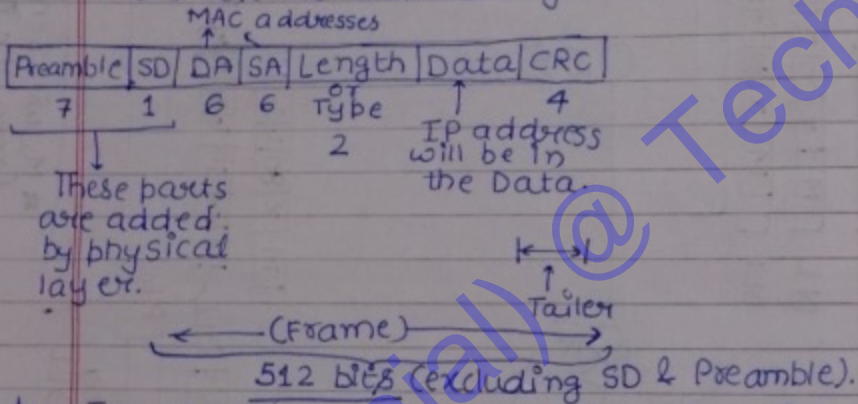 MAC addresses
Preamble SD DA SA Length Data CRC
7 1 6 6 or Type 2 4
IP address will be in the Data.
These parts
are added
by physical
layer.
Tailer
(Frame)
512 bits (excluding SD & Preamble).
@ Tech